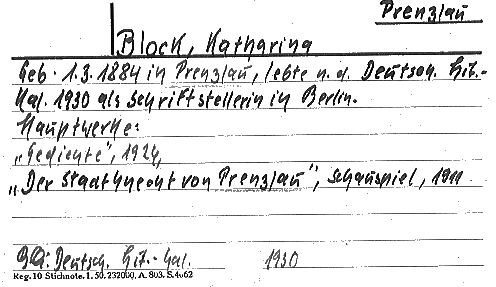 Prenzlau
Block, Katharina
Geb. 1.3.1884 in Prenzlau, lebte n. d. Deutsch. Lit.-
Kal. 1930 als Schriftstellerin in Berlin.
Hauptwerke:
„Gedichte", 1924,
„Der Stadtknecht von Prenzlau", Schauspiel, 1911
BQ: Deutsch. Lit.-Kal. 1930
Reg. 10 Stichnote. 1. 50. 232000. A. 803. S. 4062